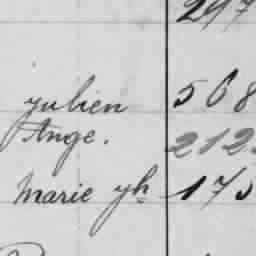 297
yulien 568
Ange. 212
Marie yh 175